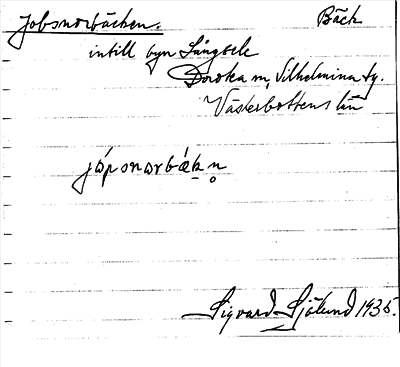 Jobsnorbäcken. Bäck
intill byn Långsele
Dorotea m, Vilhelmina ty.
Västerbottens län
jópsnorbɛ́kn̥
Sigvard Sjölund 1935.